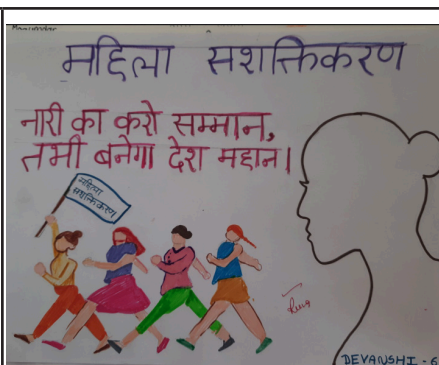 महिला सशक्तिकरण
नारी का करो सम्मान,
तभी बनेगा देश महान।
महिला
सशक्तिकरण
DEVANSHI - 6